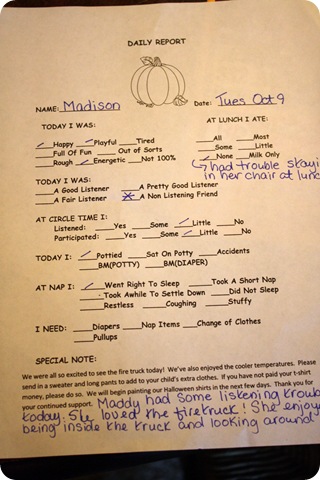 DAILY REPORT
NAME: Madison Date: Tues Oct 9
TODAY I WAS: AT LUNCH I ATE:
✓ Happy ✓ Playful ___Tired ___All ___Most
___Full Of Fun ___Out of Sorts ___Some ___Little
___Rough ✓ Energetic ___Not 100% ✓ None ___Milk Only
had trouble stayi
in her chair at lunc
TODAY I WAS:
___A Good Listener ___A Pretty Good Listener
___A Fair Listener X A Non Listening Friend
AT CIRCLE TIME I:
Listened: ___Yes ___Some ✓ Little ___No
Participated: ___Yes ___Some ✓ Little ___No
TODAY I: ✓ Pottied ___Sat On Potty ___Accidents
___BM(POTTY) ___BM(DIAPER)
AT NAP I: ✓ Went Right To Sleep ___Took A Short Nap
___Took Awhile To Settle Down ___Did Not Sleep
___Restless ___Coughing ___Stuffy
I NEED: ___Diapers ___Nap Items ___Change of Clothes
___Pullups
SPECIAL NOTE:
We were all so excited to see the fire truck today! We've also enjoyed the cooler temperatures. Please
send in a sweater and long pants to add to your child's extra clothes. If you have not paid your t-shirt
money, please do so. We will begin painting our Halloween shirts in the next few days. Thank you for
your continued support. Maddy had some listening troub
today. She loved the firetruck! She enjoye
being inside the truck and looking around